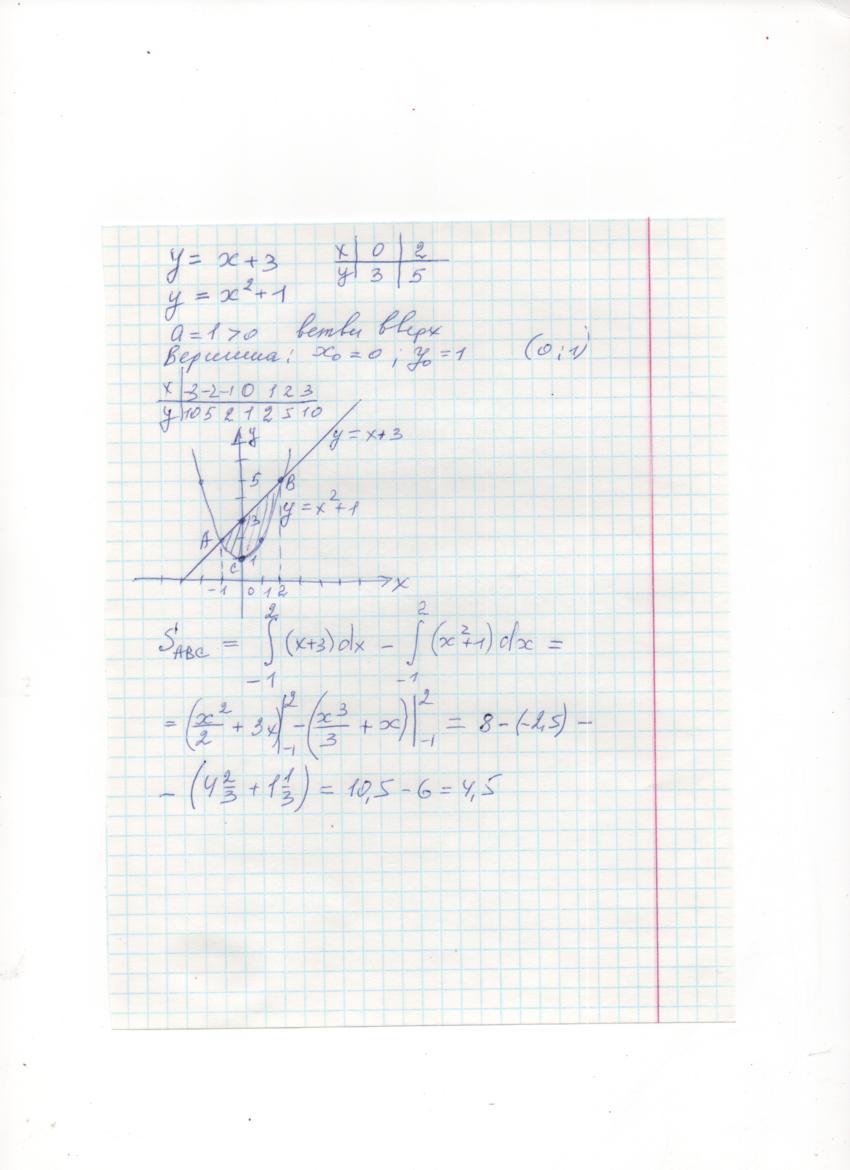 y = x + 3
x | 0 | 2
y | 3 | 5
y = x² + 1
a = 1 > 0 ветви вверх
Вершина: x₀ = 0 ; y₀ = 1 (0 ; 1)
x | -3 -2 -1 0 1 2 3
y | 10 5 2 1 2 5 10
y
y = x + 3
5 B
y = x² + 1
3
A
C 1
-1 0 1 2 x
S_ABC = ∫₋₁² (x+3) dx - ∫₋₁² (x²+1) dx =
= (x²/2 + 3x)|₋₁² - (x³/3 + x)|₋₁² = 8 - (-2,5) -
- (4 2/3 + 1 1/3) = 10,5 - 6 = 4,5